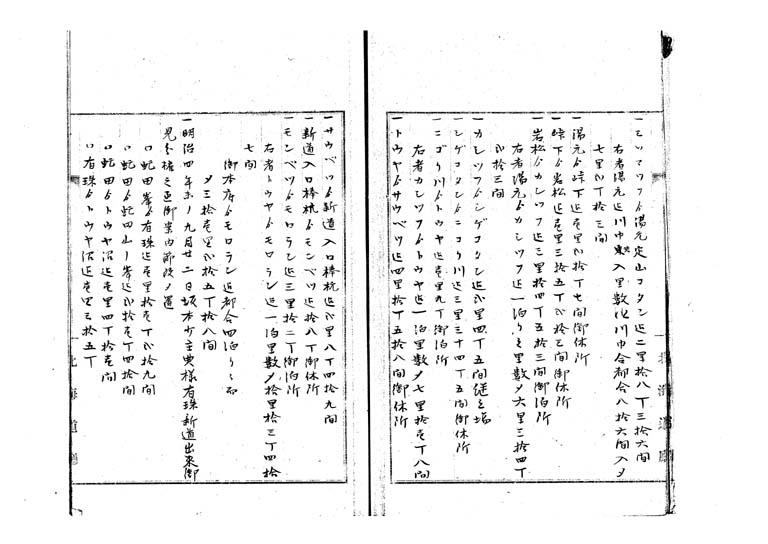 一ミツマツフゟ湯元定山コタン迄二里拾八丁三拾六間
右者湯元迄川中東入里数也川中合都合八拾六間入〆
七里弐丁拾三間
一湯元ゟ峠下迄壱里弐拾七間御休所
一峠下ゟ岩松迄壱里三拾五丁弐拾七間御休所
一岩松ゟカシツフ迄三里拾四丁五拾三間御泊所
右者湯元ゟカシツフ迄一泊り之里数〆六里三拾四丁
弐拾三間
一カシツフゟシゲコタン迄弐里四丁五間継立場
一シゲコタンゟニコリ川迄三里三十四丁五間御休所
一ニゴり川ゟトウヤ迄壱里九丁御泊所
右者カシツフゟトウヤ迄一泊里数〆七里拾壱丁八間
一トウヤゟサウベツ迄四里拾丁五拾八間御休所
一サウベツゟ新道入口棒杭迄弐里八丁四拾九間
一新道入口棒杭ゟモンベツ迄拾八丁御休所
一モンベツゟモロラン迄三里拾二丁御泊所
右者トウヤゟモロラン迄一泊里数〆拾里拾三丁四拾
七間
御本府ゟモロラン迄都合四泊り
〆三拾壱里弐拾五丁拾八間
一明治四年未ノ九月廿二日坂本少主典様有珠新道出来御
見分罷之道御案内節改ノ道
ロ虻田峯ゟ有珠迄壱里拾壱丁弐拾九間
ロ虻田ゟ虻田山ノ峯迄弐拾壱丁四拾間
ロ虻田ゟトウヤ沼迄壱里四丁拾壱間
ロ有珠ゟトウヤ沼迄壱里三拾五丁
北海道庁
北海道庁